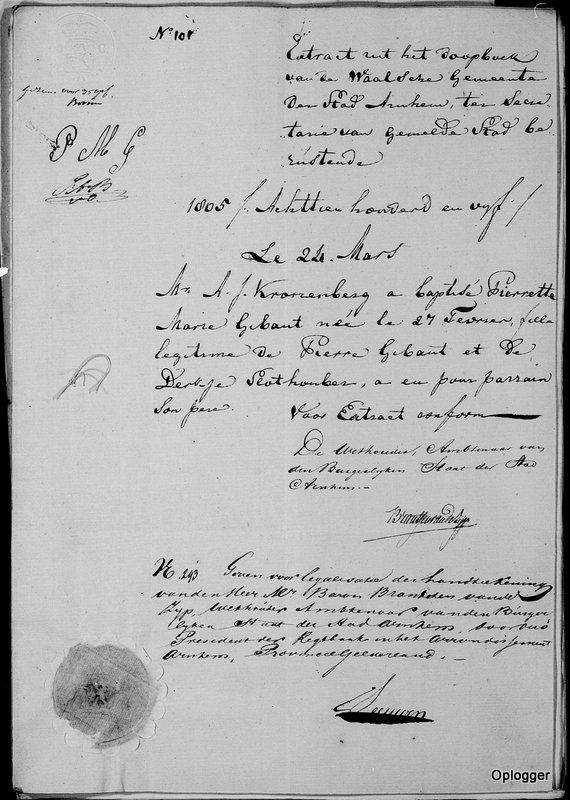 No 101
Extract uit het doopboek
van de Waalsche Gemeente
der Stad Arnhem, ter Secre
tarie van gemelde Stad be
rustende
P M G
1805 /. Achttien honderd en vyf ./
Le 24. Mars
Mr. A. J. Kronenberg a baptisé Pierrette
Marie Gibaut née le 27 Fevrier, fille
legitime de Pierre Gibaut et de
Derkje Slothouber, a eu pour parrain
Son pere. Voor Extract conform
De Wethouder, Ambtenaar van
den Burgerlyken Staat der Stad
Arnhem.-
N. 293 Gezien voor legalisatie der handtekening
van den Heer Mr Baron Brantsen van de
Zyp, Wethouder Ambtenaar van den Burger
lyken Staat der Stad Arnhem door ons
President der Regtbank in het Arrondissement
Arnhem, Provincie Gelderland. -
Oplogger